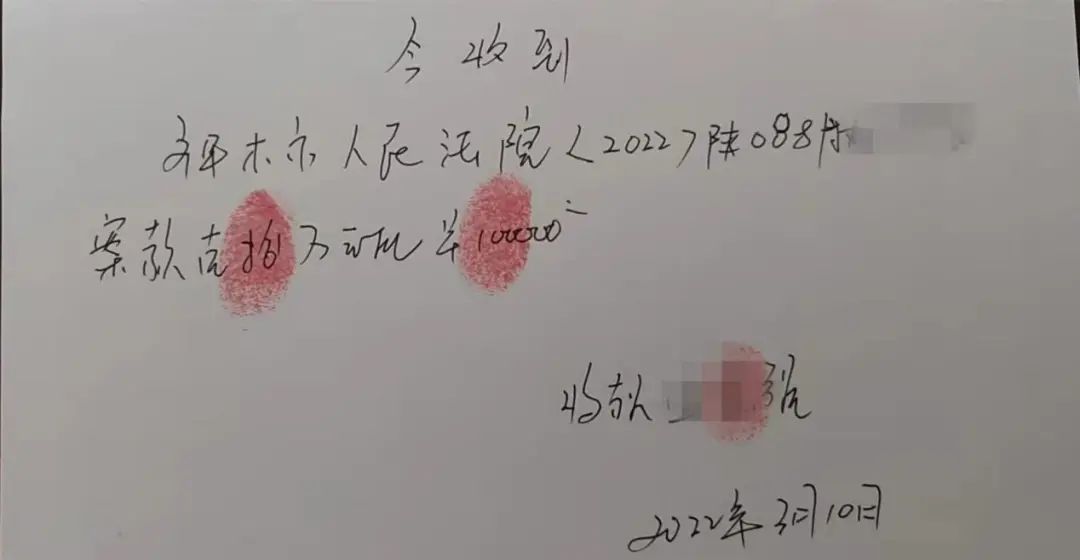 今收到
木尔人民法院(2022)陕088
案款壹拾万元 ￥100000
收款人
2022年3月10日